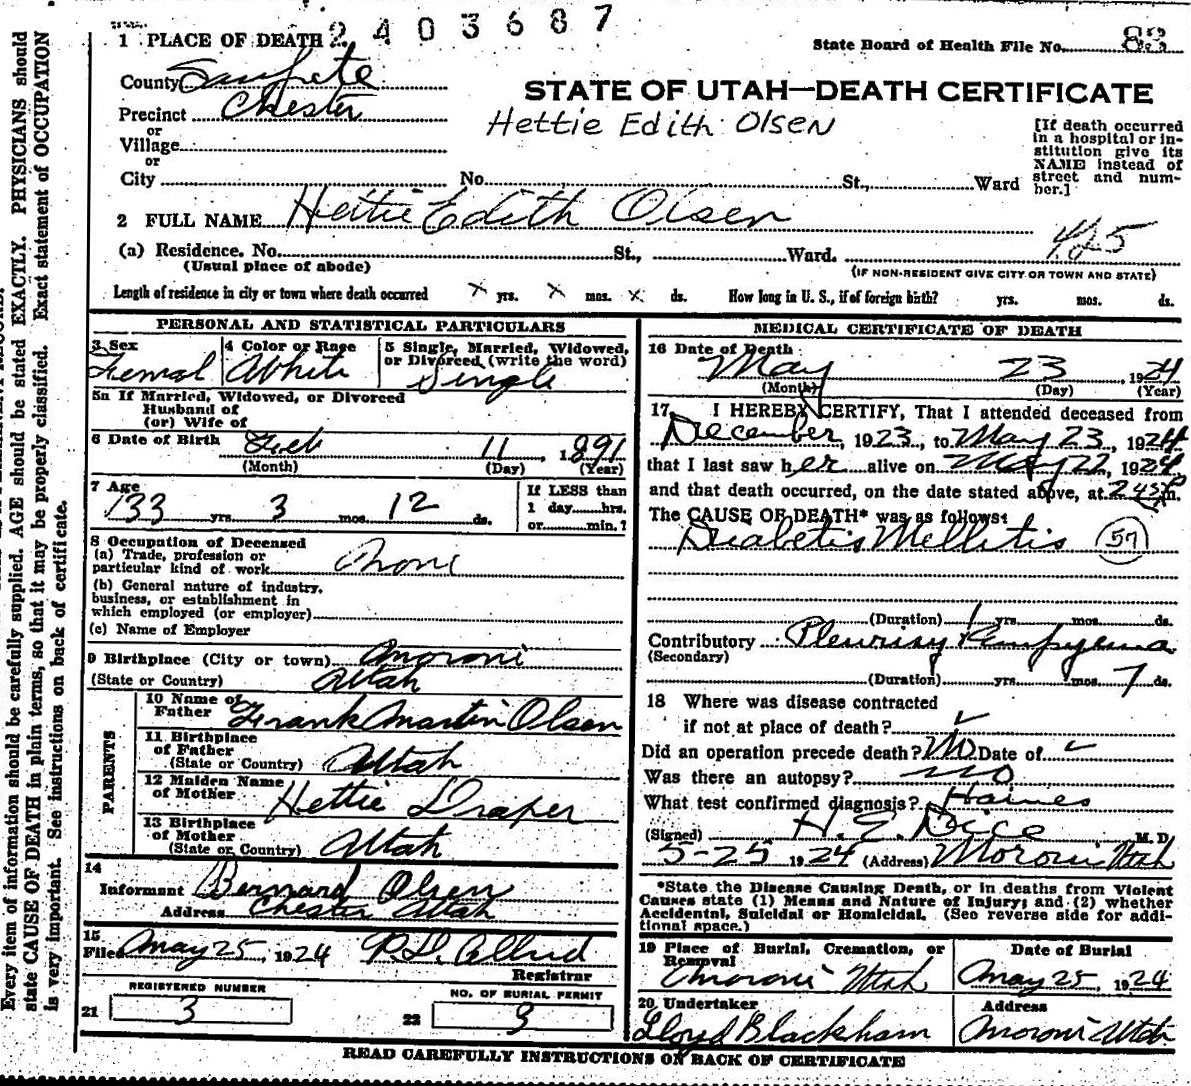 2403687
1 PLACE OF DEATH
State Board of Health File No. 83
County Sanpete
STATE OF UTAH—DEATH CERTIFICATE
Precinct Chester
Hettie Edith Olsen
or
Village
or
City No. St., Ward
[If death occurred
in a hospital or in-
stitution give its
NAME instead of
street and num-
ber.]
2 FULL NAME Hettie Edith Olsen
(a) Residence. No. St., Ward.
(Usual place of abode)
(IF NON-RESIDENT GIVE CITY OR TOWN AND STATE)
Length of residence in city or town where death occurred x yrs. x mos. x ds. How long in U. S., if of foreign birth? yrs. mos. ds.
PERSONAL AND STATISTICAL PARTICULARS
3 Sex
Femal
4 Color or Race
White
5 Single, Married, Widowed,
or Divorced (write the word)
Single
5a If Married, Widowed, or Divorced
Husband of
(or) Wife of
6 Date of Birth Feb 11, 1891
(Month) (Day) (Year)
7 Age
33 yrs. 3 mos. 12 ds.
If LESS than
1 day hrs.
or min.?
8 Occupation of Deceased
(a) Trade, profession or
particular kind of work
(b) General nature of industry,
business, or establishment in
which employed (or employer)
(c) Name of Employer
9 Birthplace (City or town) Moroni
(State or Country) Utah
PARENTS
10 Name of
Father Frank Martin Olsen
11 Birthplace
of Father
(State or Country) Utah
12 Maiden Name
of Mother Hettie Draper
13 Birthplace
of Mother
(State or Country) Utah
14
Informant Bernard Olsen
Address Chester Utah
15
Filed May 25, 1924 Allred
Registrar
REGISTERED NUMBER
21 3
NO. OF BURIAL PERMIT
22 3
MEDICAL CERTIFICATE OF DEATH
16 Date of Death
May 23, 1924
(Month) (Day) (Year)
17 I HEREBY CERTIFY, That I attended deceased from
December, 1923, to May 23, 1924
that I last saw her alive on May 22, 1924,
and that death occurred, on the date stated above, at 2 45 P m.
The CAUSE OF DEATH* was as follows:
Diabetis Mellitis 57
(Duration) 1 yrs. mos. ds.
Contributory Pleurisy Empyema
(Secondary)
(Duration) yrs. mos. 7 ds.
18 Where was disease contracted
if not at place of death?
Did an operation precede death? No Date of
Was there an autopsy? no
What test confirmed diagnosis? Haines
(Signed) H. E. Dice M. D.
5-25 1924 (Address) Moroni Utah
*State the Disease Causing Death, or in deaths from Violent
Causes state (1) Means and Nature of Injury; and (2) whether
Accidental, Suicidal or Homicidal. (See reverse side for addi-
tional space.)
19 Place of Burial, Cremation, or
Removal
Moroni Utah
Date of Burial
May 25, 1924
20 Undertaker
Lloyd Blackham
Address
Moroni Utah
READ CAREFULLY INSTRUCTIONS ON BACK OF CERTIFICATE
Every item of information should be carefully supplied. AGE should be stated EXACTLY. PHYSICIANS should
state CAUSE OF DEATH in plain terms, so that it may be properly classified. Exact statement of OCCUPATION
is very important. See instructions on back of certificate.